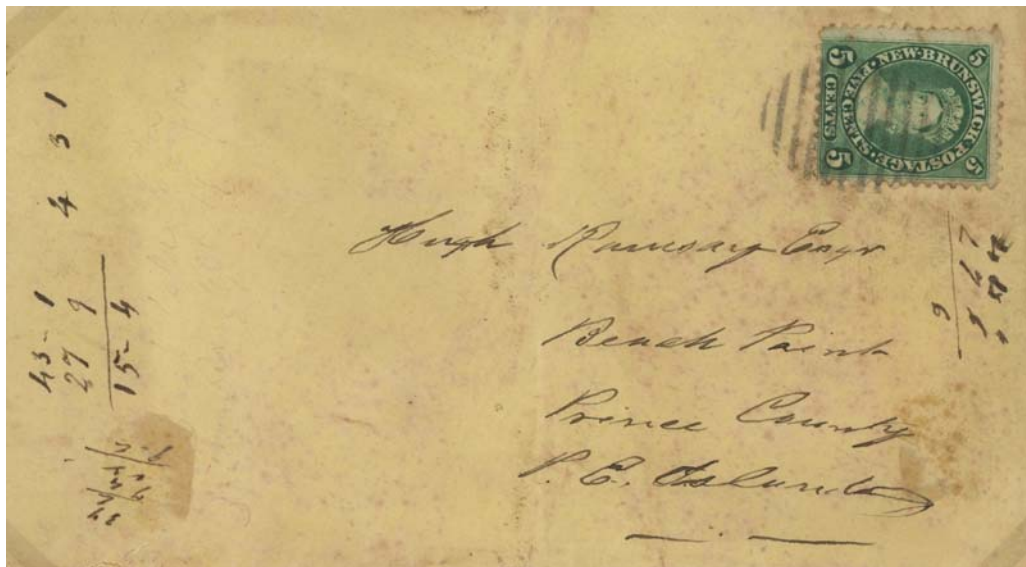 5 5
NEW BRUNSWICK POSTAGE
FIVE CENTS
CENTS
5 5
Hugh Ramsay Esqr
Beach Point
Prince County
P. E. Island
4 3 1
43- 1
27 9
15- 4